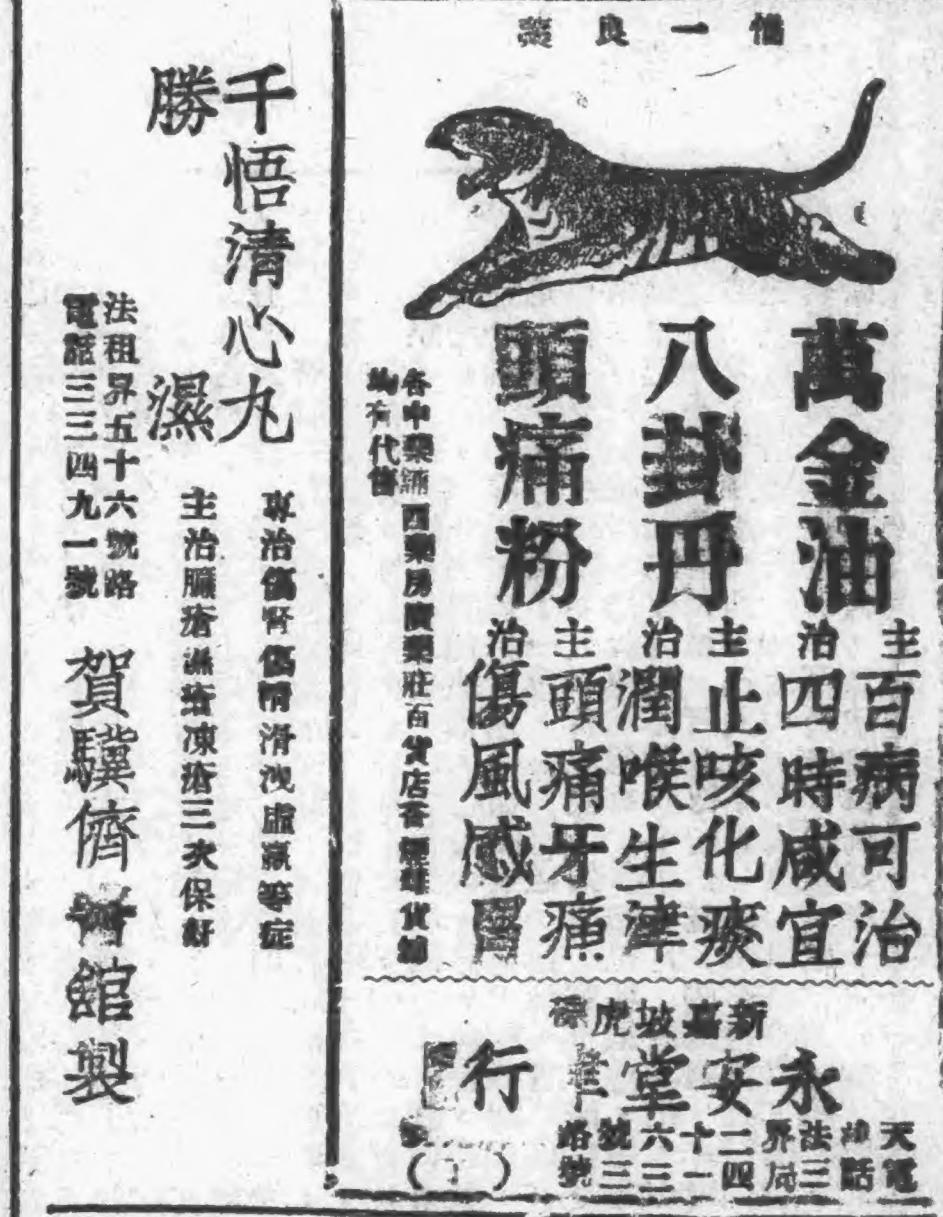 備一良藥
萬金油
主治
百病可治
四時咸宜
八卦丹
主治
止咳化痰
潤喉生津
頭痛粉
主治
頭痛牙痛
傷風感冒
各中藥鋪西藥房廣藥莊百貨店香煙雜貨鋪
均有代售
新嘉坡虎標
永安堂行
天津法界二十六號路
電話三局四一三三號
千悟清心丸
專治傷腎傷精滑洩虛羸等症
勝濕
主治臁瘡濕瘡凍瘡三次保好
法租界五十六號路
電話三三四九一號
賀驥儕醫館製